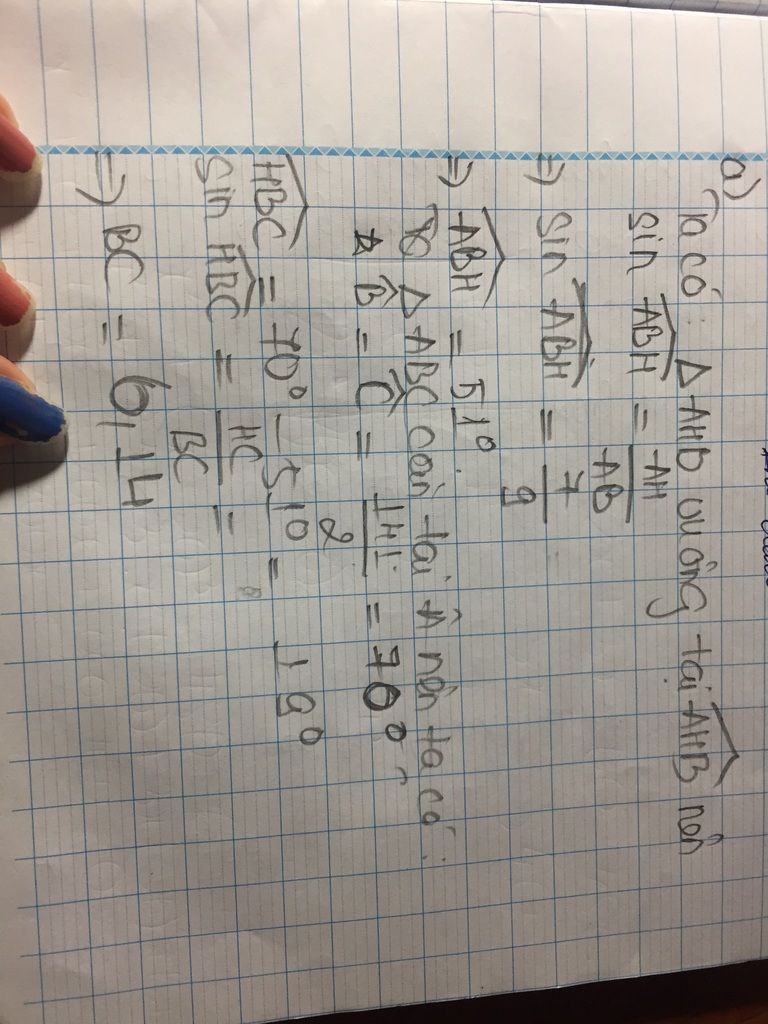 a)
Ta có: Δ AHB vuông tại AHB nên
sin ABH = AH / AB
=> sin ABH = 7 / 9
=> ABH = 51°
Δ ABC cân tại A nên ta có:
B = C = 141 / 2 = 70°
HBC = 70° - 51° = 19°
sin HBC = HC / BC =
=> BC = 6,14